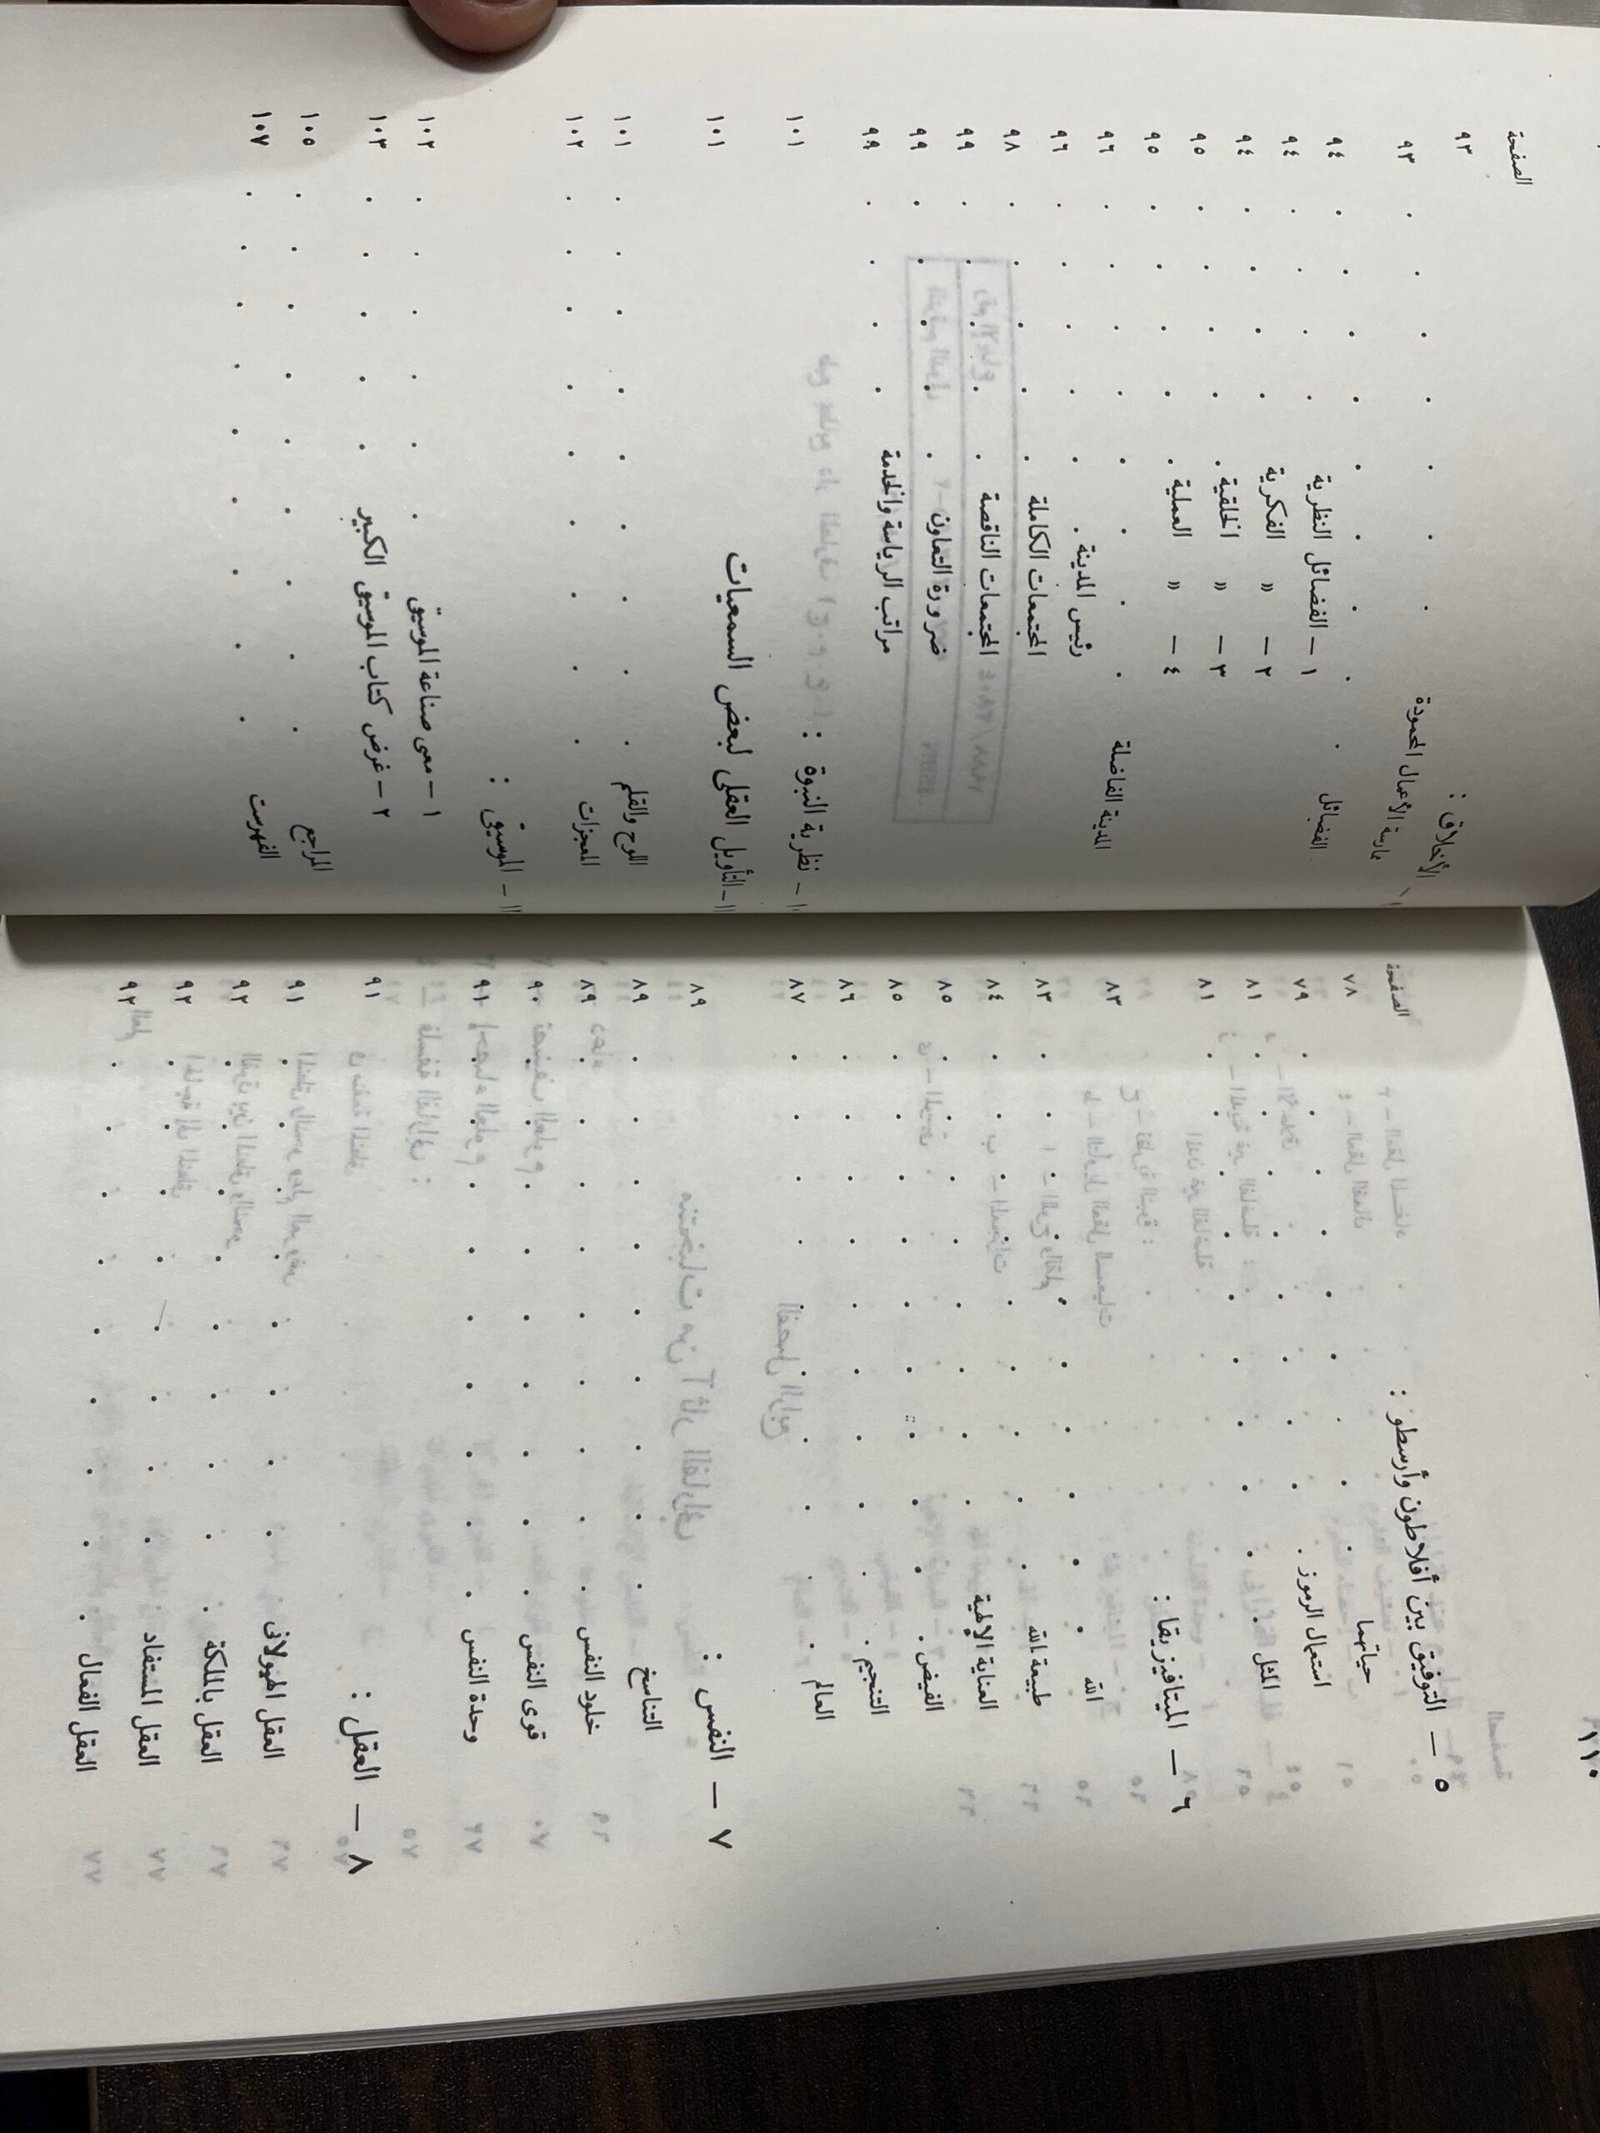 ١١٠
الصفحة
٥ — التوفيق بين أفلاطون وأرسطو :
حياتهما . . . . . . . . ٧٨
استعمال الرموز . . . . . . . . ٧٩
المثل . . . . . . . . ٨١
٦ — الميتافيزيقا : . . . . . . ٨١
الله . . . . . . . . ٨٣
طبيعة الله . . . . . . . . ٨٣
العناية الإلهية . . . . . . . . ٨٤
الفيض . . . . . . . . ٨٥
التنجيم . . . . . . . . ٨٥
العالم . . . . . . . . ٨٦
٨٧
٧ — النفس : ٨٩
التناسخ . . . . . . . . ٨٩
خلود النفس . . . . . . . . ٨٩
قوى النفس . . . . . . . . ٩٠
وحدة النفس . . . . . . . . ٩١
٨ — العقل : ٩١
العقل الهيولانى . . . . . . . . ٩١
العقل بالملكة . . . . . . . . ٩٢
العقل المستفاد . . . . . . . . ٩٢
العقل الفعال . . . . . . . . ٩٢
الصفحة
الأخلاق : ٩٣
ممارسة الأعمال المحمودة . . . . . . . ٩٣
الفضائل . . . . . . . . ٩٤
١ — الفضائل النظرية . . . . ٩٤
٢ — » الفكرية . . . . ٩٤
٣ — » الخلقية . . . . ٩٥
٤ — » العملية . . . . ٩٥
المدينة الفاضلة . . . . . . . . ٩٦
رئيس المدينة . . . . . . ٩٦
المجتمعات الكاملة . . . . . ٩٨
المجتمعات الناقصة . . . . . ٩٩
ضرورة التعاون . . . . . ٩٩
مراتب الرياسة والخدمة . . . . ٩٩
١٠ — نظرية النبوة : ١٠١
١١ — التأويل العقلى لبعض السمعيات ١٠١
اللوح والقلم . . . . . . . . ١٠١
المعجزات . . . . . . . . ١٠٢
الموسيقى :
١ — معنى صناعة الموسيقى . . . . . . ١٠٢
٢ — غرض كتاب الموسيقى الكبير . . . . ١٠٣
المراجع . . . . . . . . ١٠٥
الفهرست . . . . . . . . ١٠٧